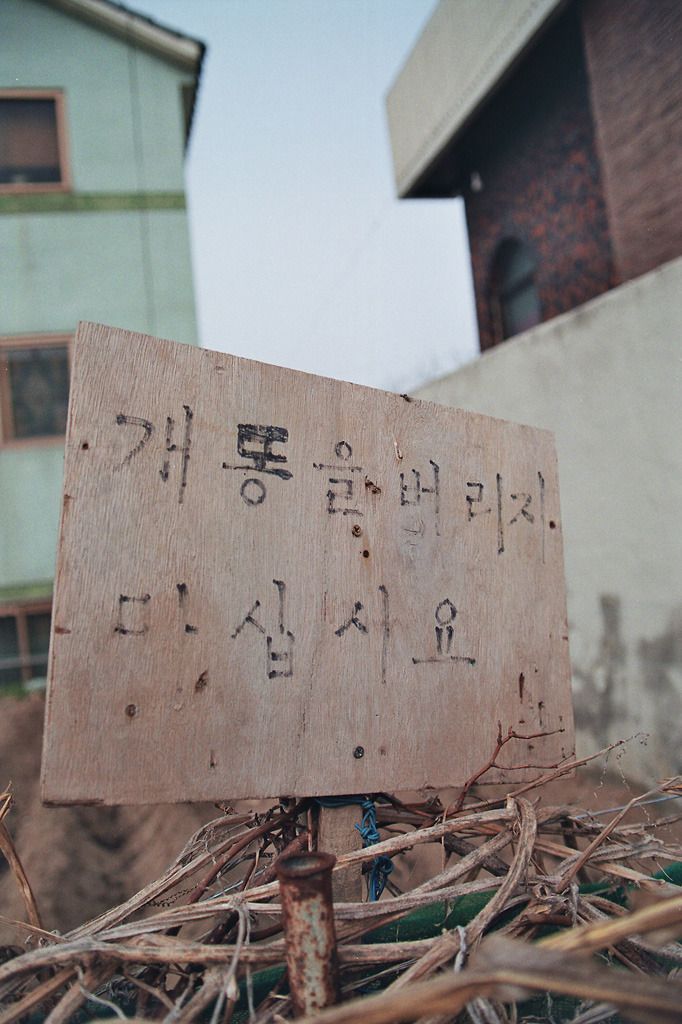 개 똥 을 버 리지
마 십 시 요